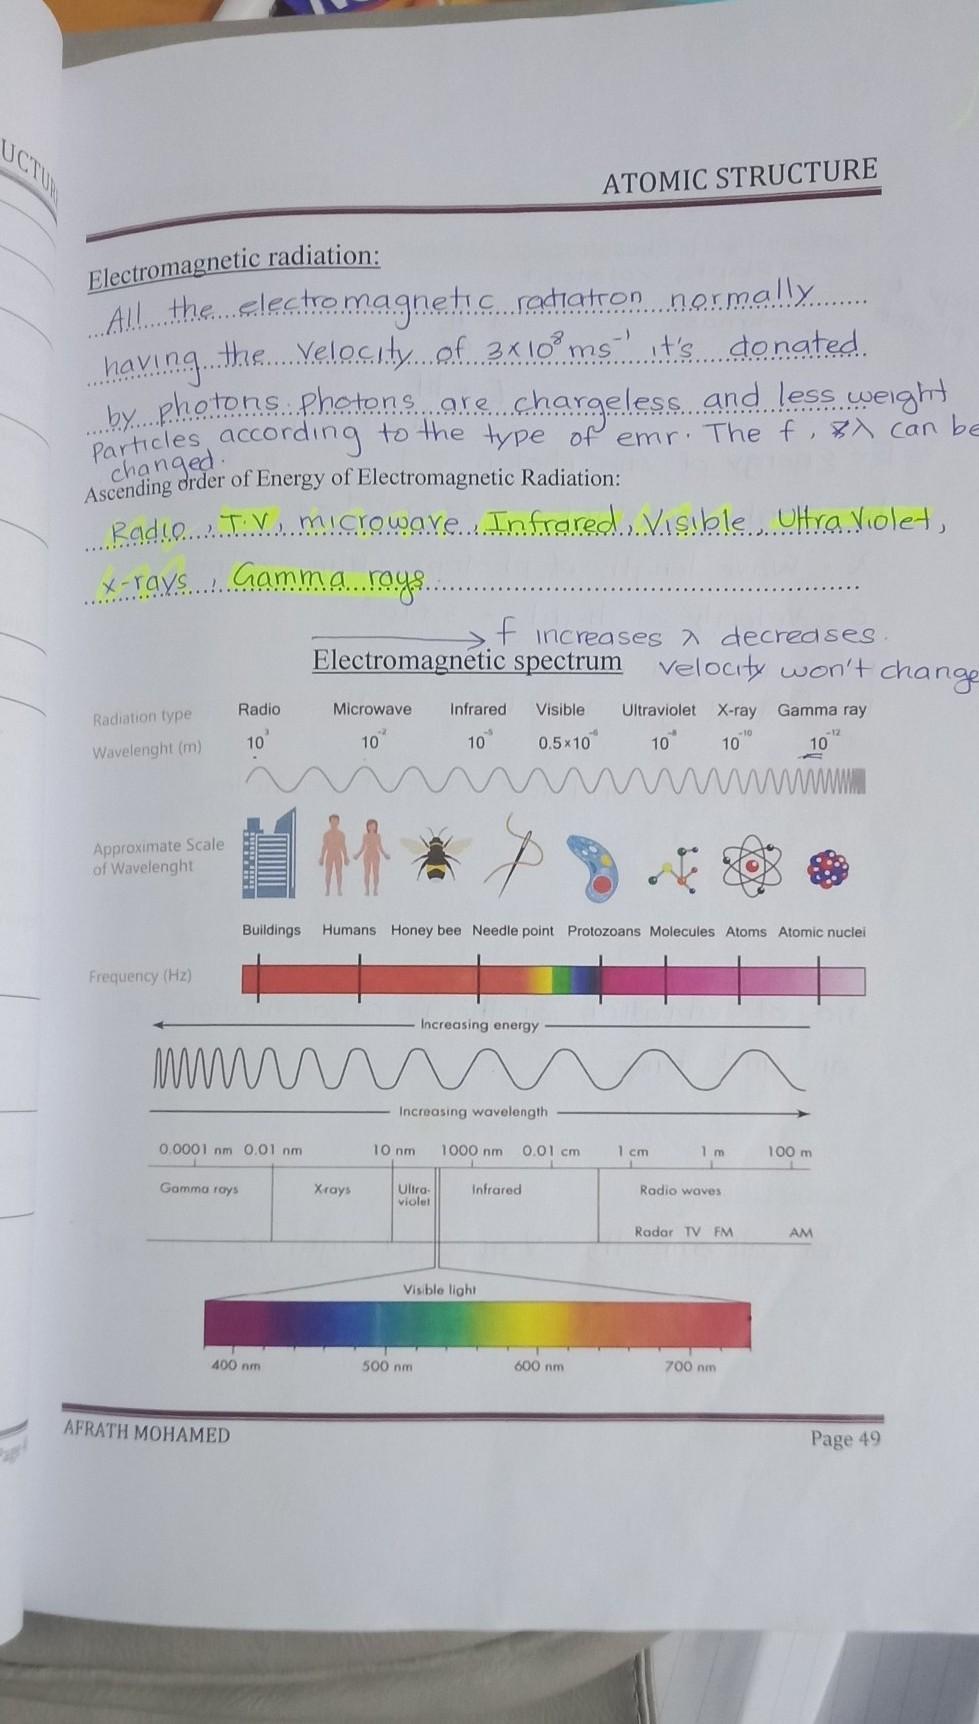 UCTUR
ATOMIC STRUCTURE
Electromagnetic radiation:
All the electromagnetic radiation normally
having the velocity of 3×10⁸ ms⁻¹ it's donated
by photons. Photons are chargeless and less weight
Particles according to the type of emr. The f, λ can be
changed.
Ascending order of Energy of Electromagnetic Radiation:
Radio, T.V, microwave, Infrared, Visible, Ultra Violet,
x-rays, Gamma rays
f increases λ decreases.
Electromagnetic spectrum velocity won't change
Radiation type Radio Microwave Infrared Visible Ultraviolet X-ray Gamma ray
Wavelenght (m) 10³ 10⁻² 10⁻⁵ 0.5×10⁻⁶ 10⁻⁸ 10⁻¹⁰ 10⁻¹²
Approximate Scale
of Wavelenght
Buildings Humans Honey bee Needle point Protozoans Molecules Atoms Atomic nuclei
Frequency (Hz)
Increasing energy
Increasing wavelength
0.0001 nm 0.01 nm 10 nm 1000 nm 0.01 cm 1 cm 1 m 100 m
Gamma rays X-rays Ultra- Infrared Radio waves
violet
Radar TV FM AM
Visible light
400 nm 500 nm 600 nm 700 nm
AFRATH MOHAMED Page 49